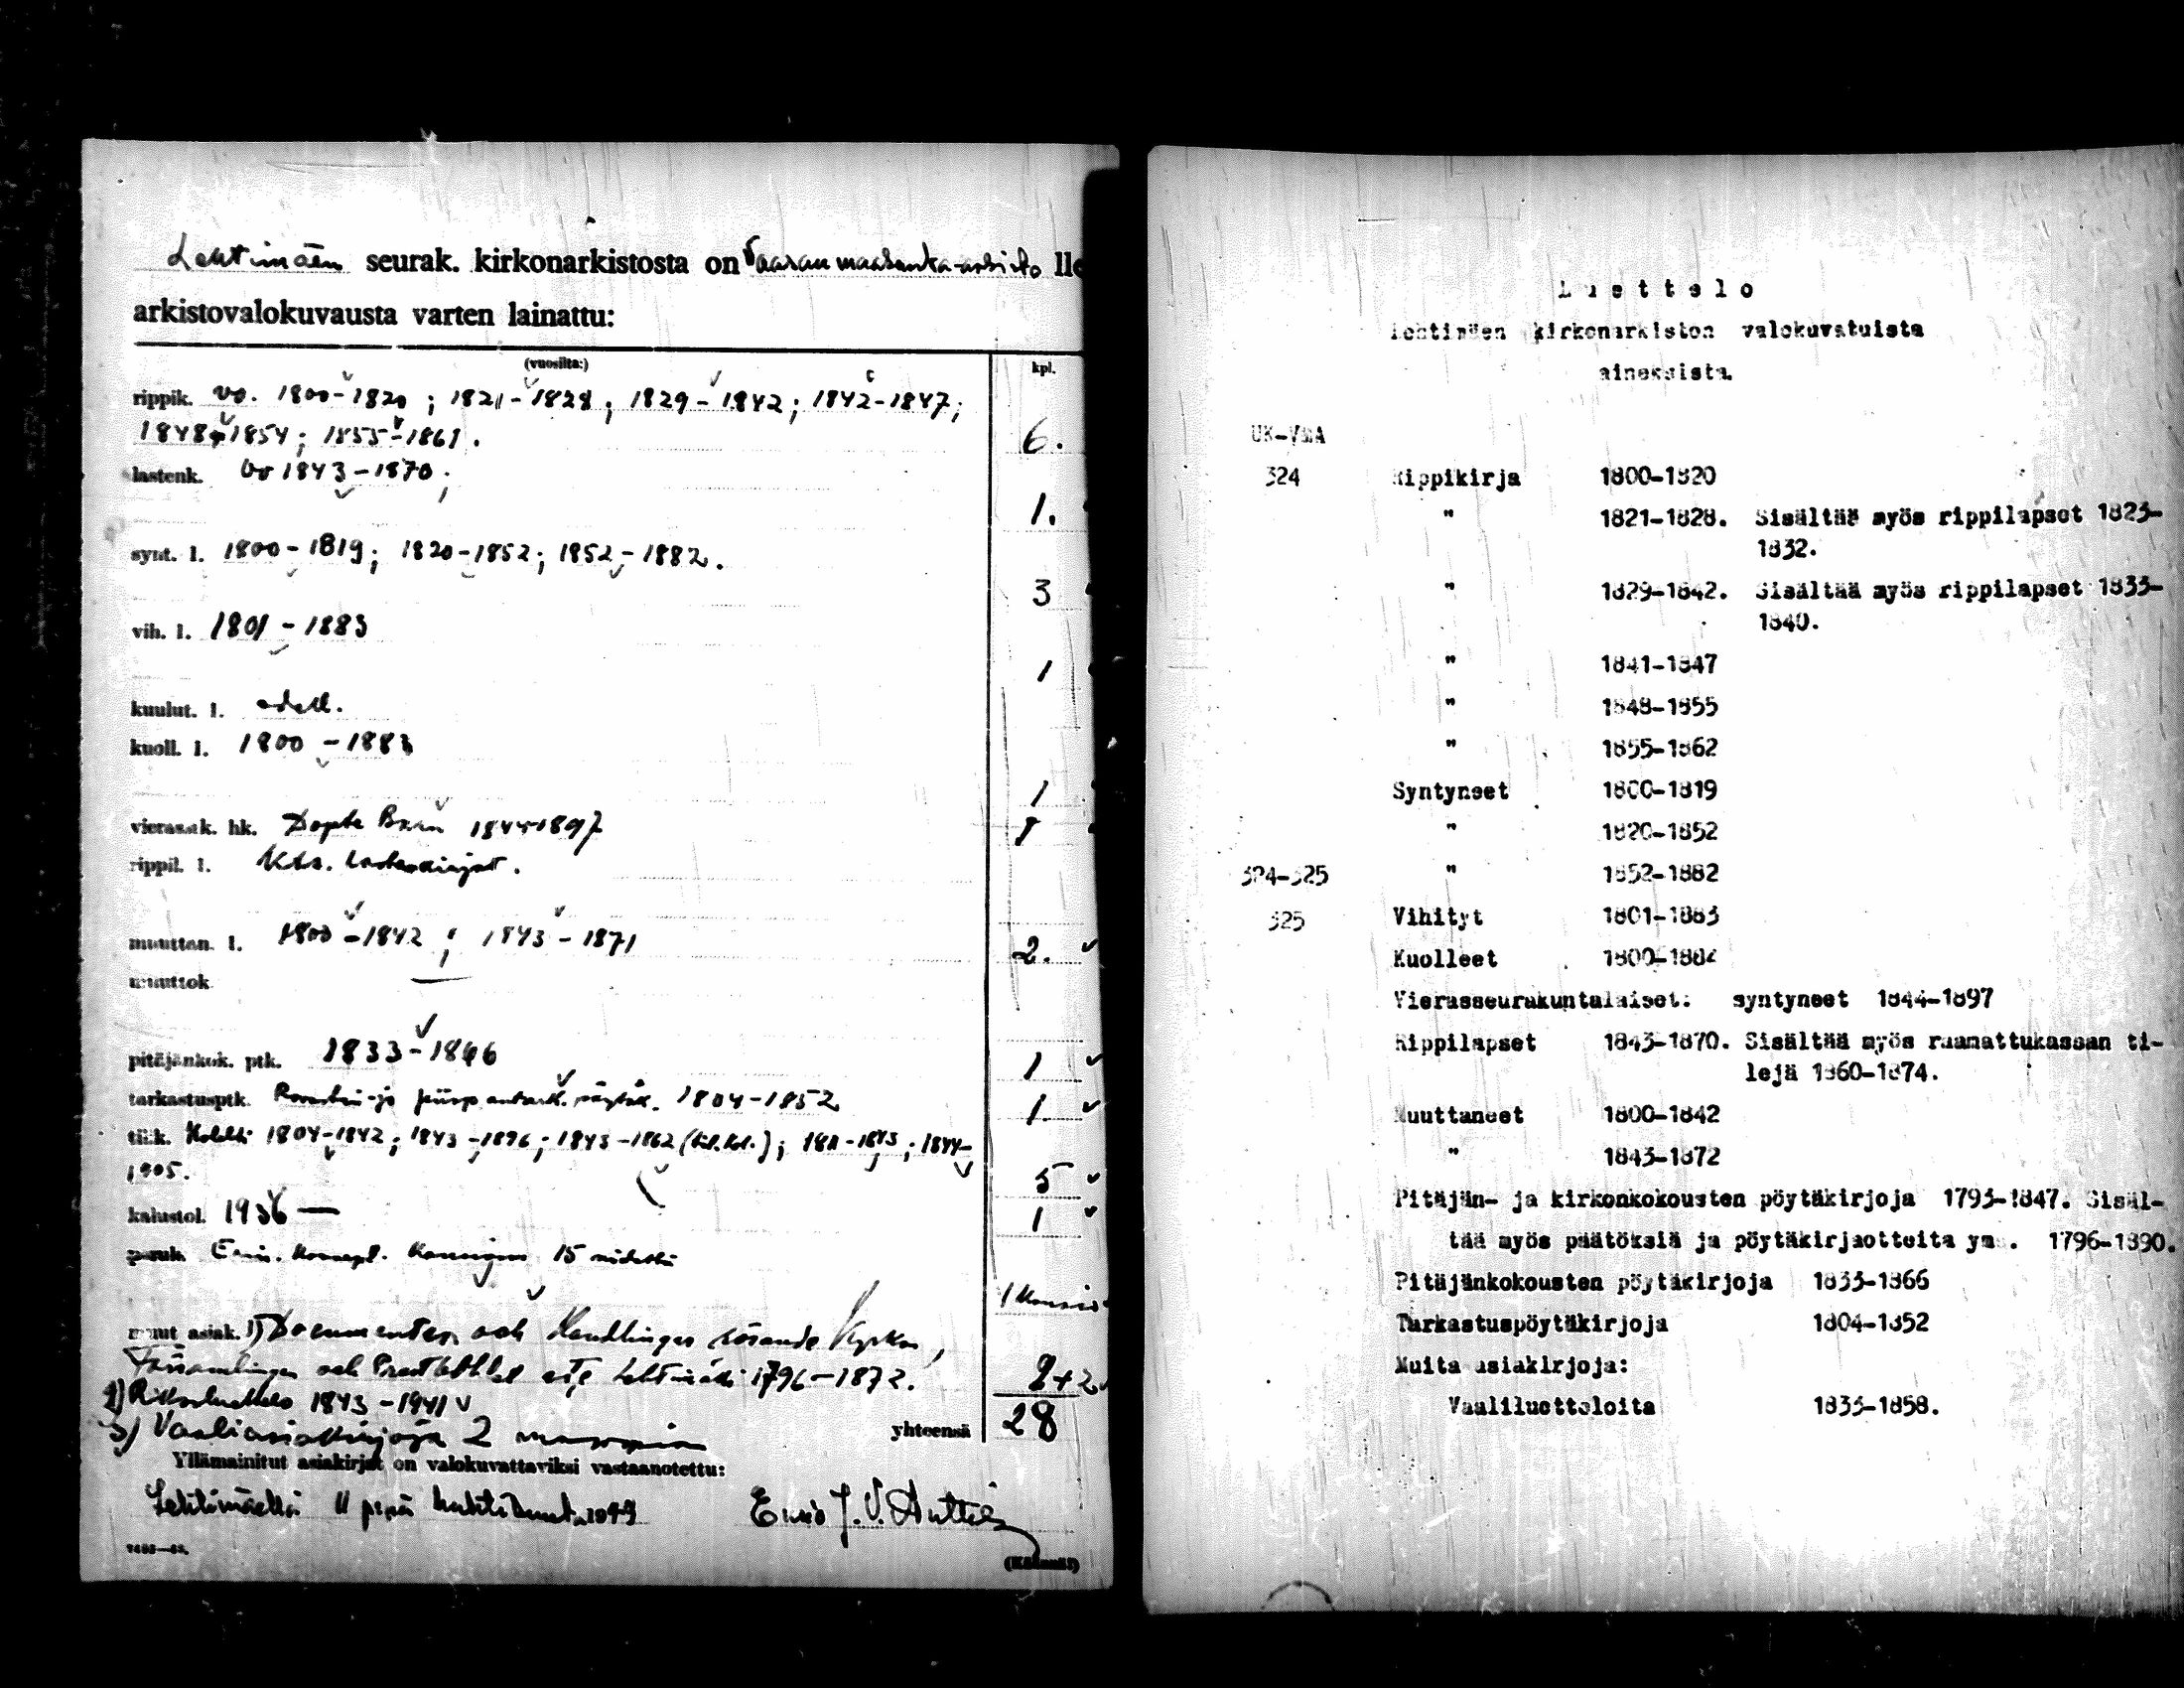 Lehtimäen seurak. kirkonarkistosta on Vaasan maakunta-arkisto lle
arkistovalokuvausta varten lainattu:
(vuosilta:)
kpl.
rippik. vv. 1800-1820 ; 1821-1828 ; 1829-1842 ; 1842-1847 ;
1848-1854 ; 1855-1861 . 6.
lastenk. vv 1843-1870 ; 1.
synt. l. 1800-1819 ; 1820-1852 ; 1852-1882 . 3
vih. l. 1801-1883 1
kuulut. l. edell.
kuoll. l. 1800-1883 1
vierassk. hk. Döpte Barn 1844-1897
rippil. l. Kts. lastenkirjat.
muuttan. l. 1800-1842 ; 1843-1871 2.
muuttok —
pitäjänkok. ptk. 1833-1866 1
tarkastusptk. 1804-1852 1
tilik. 1804-1842 ; 1843-1896 ; 1843-1862 ; 1811-1843 ; 1844-
1905. 5
kalustol. 1936 — 1
15
muut asiak. 1) Documenter och Handlingar rörande Kyrkan,
Församlingen och Lehtimäki 1796-1872. 2+2
2) Rikosluettelo 1843-1941
3) Vaaliasiakirjoja 2
yhteensä 28
Yllämainitut asiakirjat on valokuvattaviksi vastaanotettu:
Lehtimäellä 11 p:nä huhtikuuta 1949 J. V. Anttila
L u e t t e l o
Lehtimäen kirkonarkiston valokuvatuista
aineksista.
UK-VmA
324 Rippikirja 1800-1820
" 1821-1828. Sisältää myös rippilapset 1823-
1832.
" 1829-1842. Sisältää myös rippilapset 1833-
1840.
" 1841-1847
" 1848-1855
" 1855-1862
Syntyneet 1800-1819
" 1820-1852
324-325 " 1852-1882
325 Vihityt 1801-1883
Kuolleet 1800-1884
Vierasseurakuntalaiset: syntyneet 1844-1897
Rippilapset 1843-1870. Sisältää myös raamattukassan ti-
lejä 1860-1874.
Muuttaneet 1800-1842
" 1843-1872
Pitäjän- ja kirkonkokousten pöytäkirjoja 1793-1847. Sisäl-
tää myös päätöksiä ja pöytäkirjaotteita ym. 1796-1890.
Pitäjänkokousten pöytäkirjoja 1833-1866
Tarkastuspöytäkirjoja 1804-1852
Muita asiakirjoja:
Vaaliluetteloita 1833-1858.